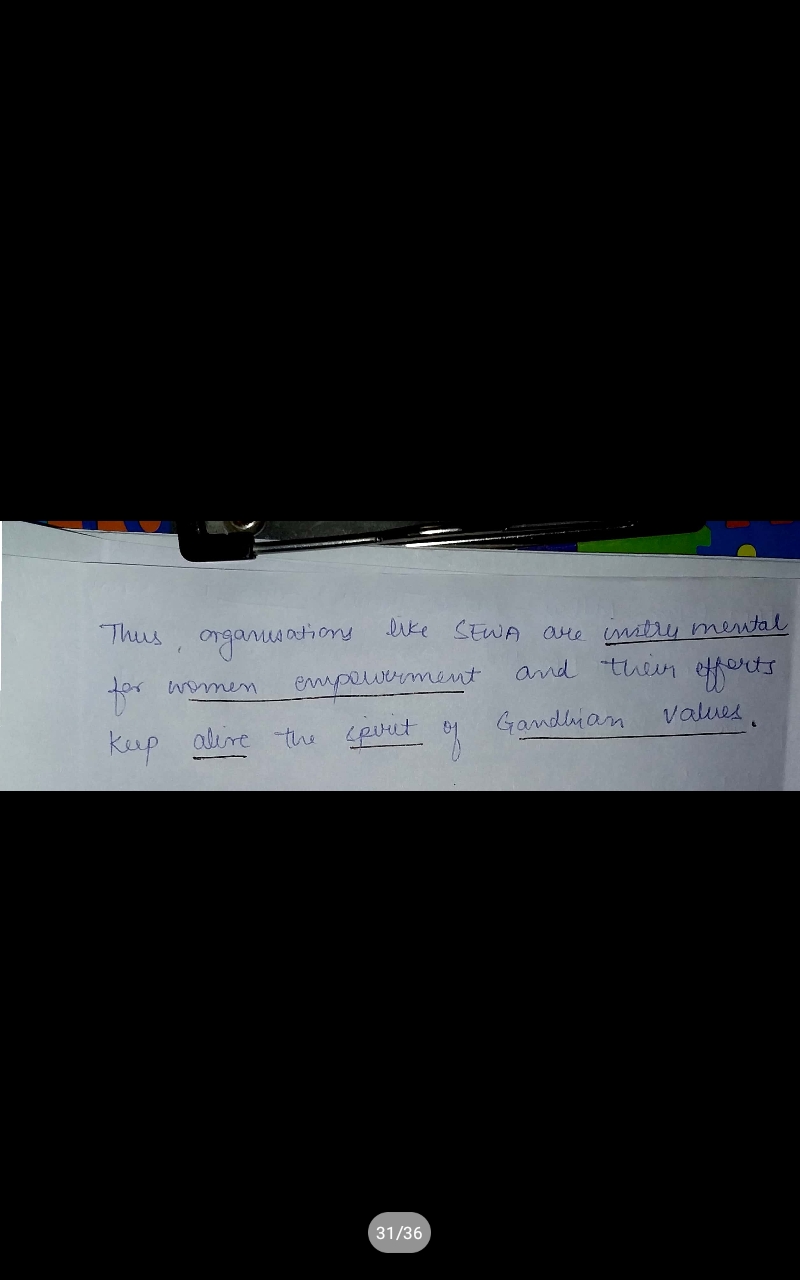 Thus, organisations like SEWA are instrumental
for women empowerment and their efforts
keep alive the spirit of Gandhian values.
31/36